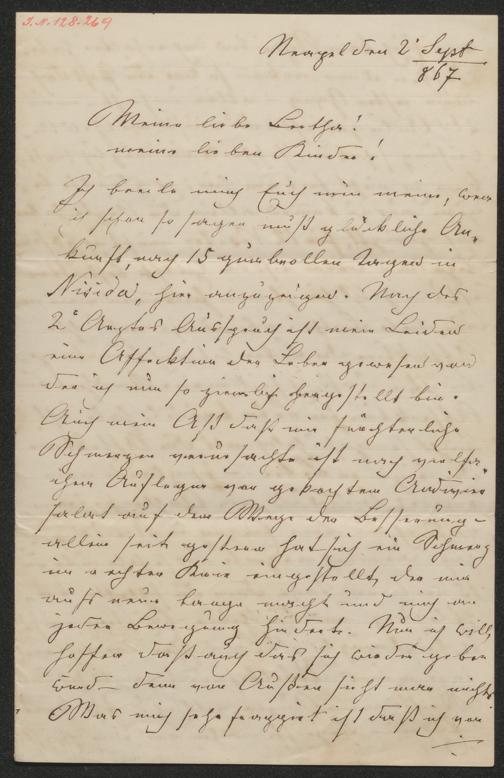 I.N. 128.269
Neapel den 2t Sept
867
Meine liebe Bertha!
meine lieben Kinder!
Ich beeile mich Euch nun meine, wen
ich schon so sagen muß glückliche An-
kunft, nach 15 qualvollen Tagen in
Nisida, hier anzuzeigen. Nach des
2t Arztes Ausspruch ist mein Leiden
eine Affecktion der Leber gewesen von
der ich nun so ziemlich hergestellt bin.
Auch mein daß mir fürchterliche
Schmerzen verursachte ist nach vielfa-
chem Auflegen von gekochtem Andivien
salat auf dem Wege der Besserung –
allein seit gestern hat sich ein Schmerz
im rechten Knie eingestellt, der mir
aufs neue bange macht und mich an
jeder Bewegung hindert. Nun ich will
hoffen daß auch das sich wieder geben
wird – denn von Außen sieht man nichts
Was mich sehr frappirt ist daß ich von